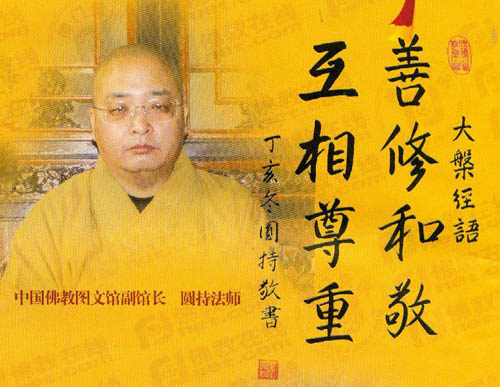 大槃經語
善修和敬
互相尊重
丁亥冬圓持敬書
中国佛教图文馆副馆长 圆持法师